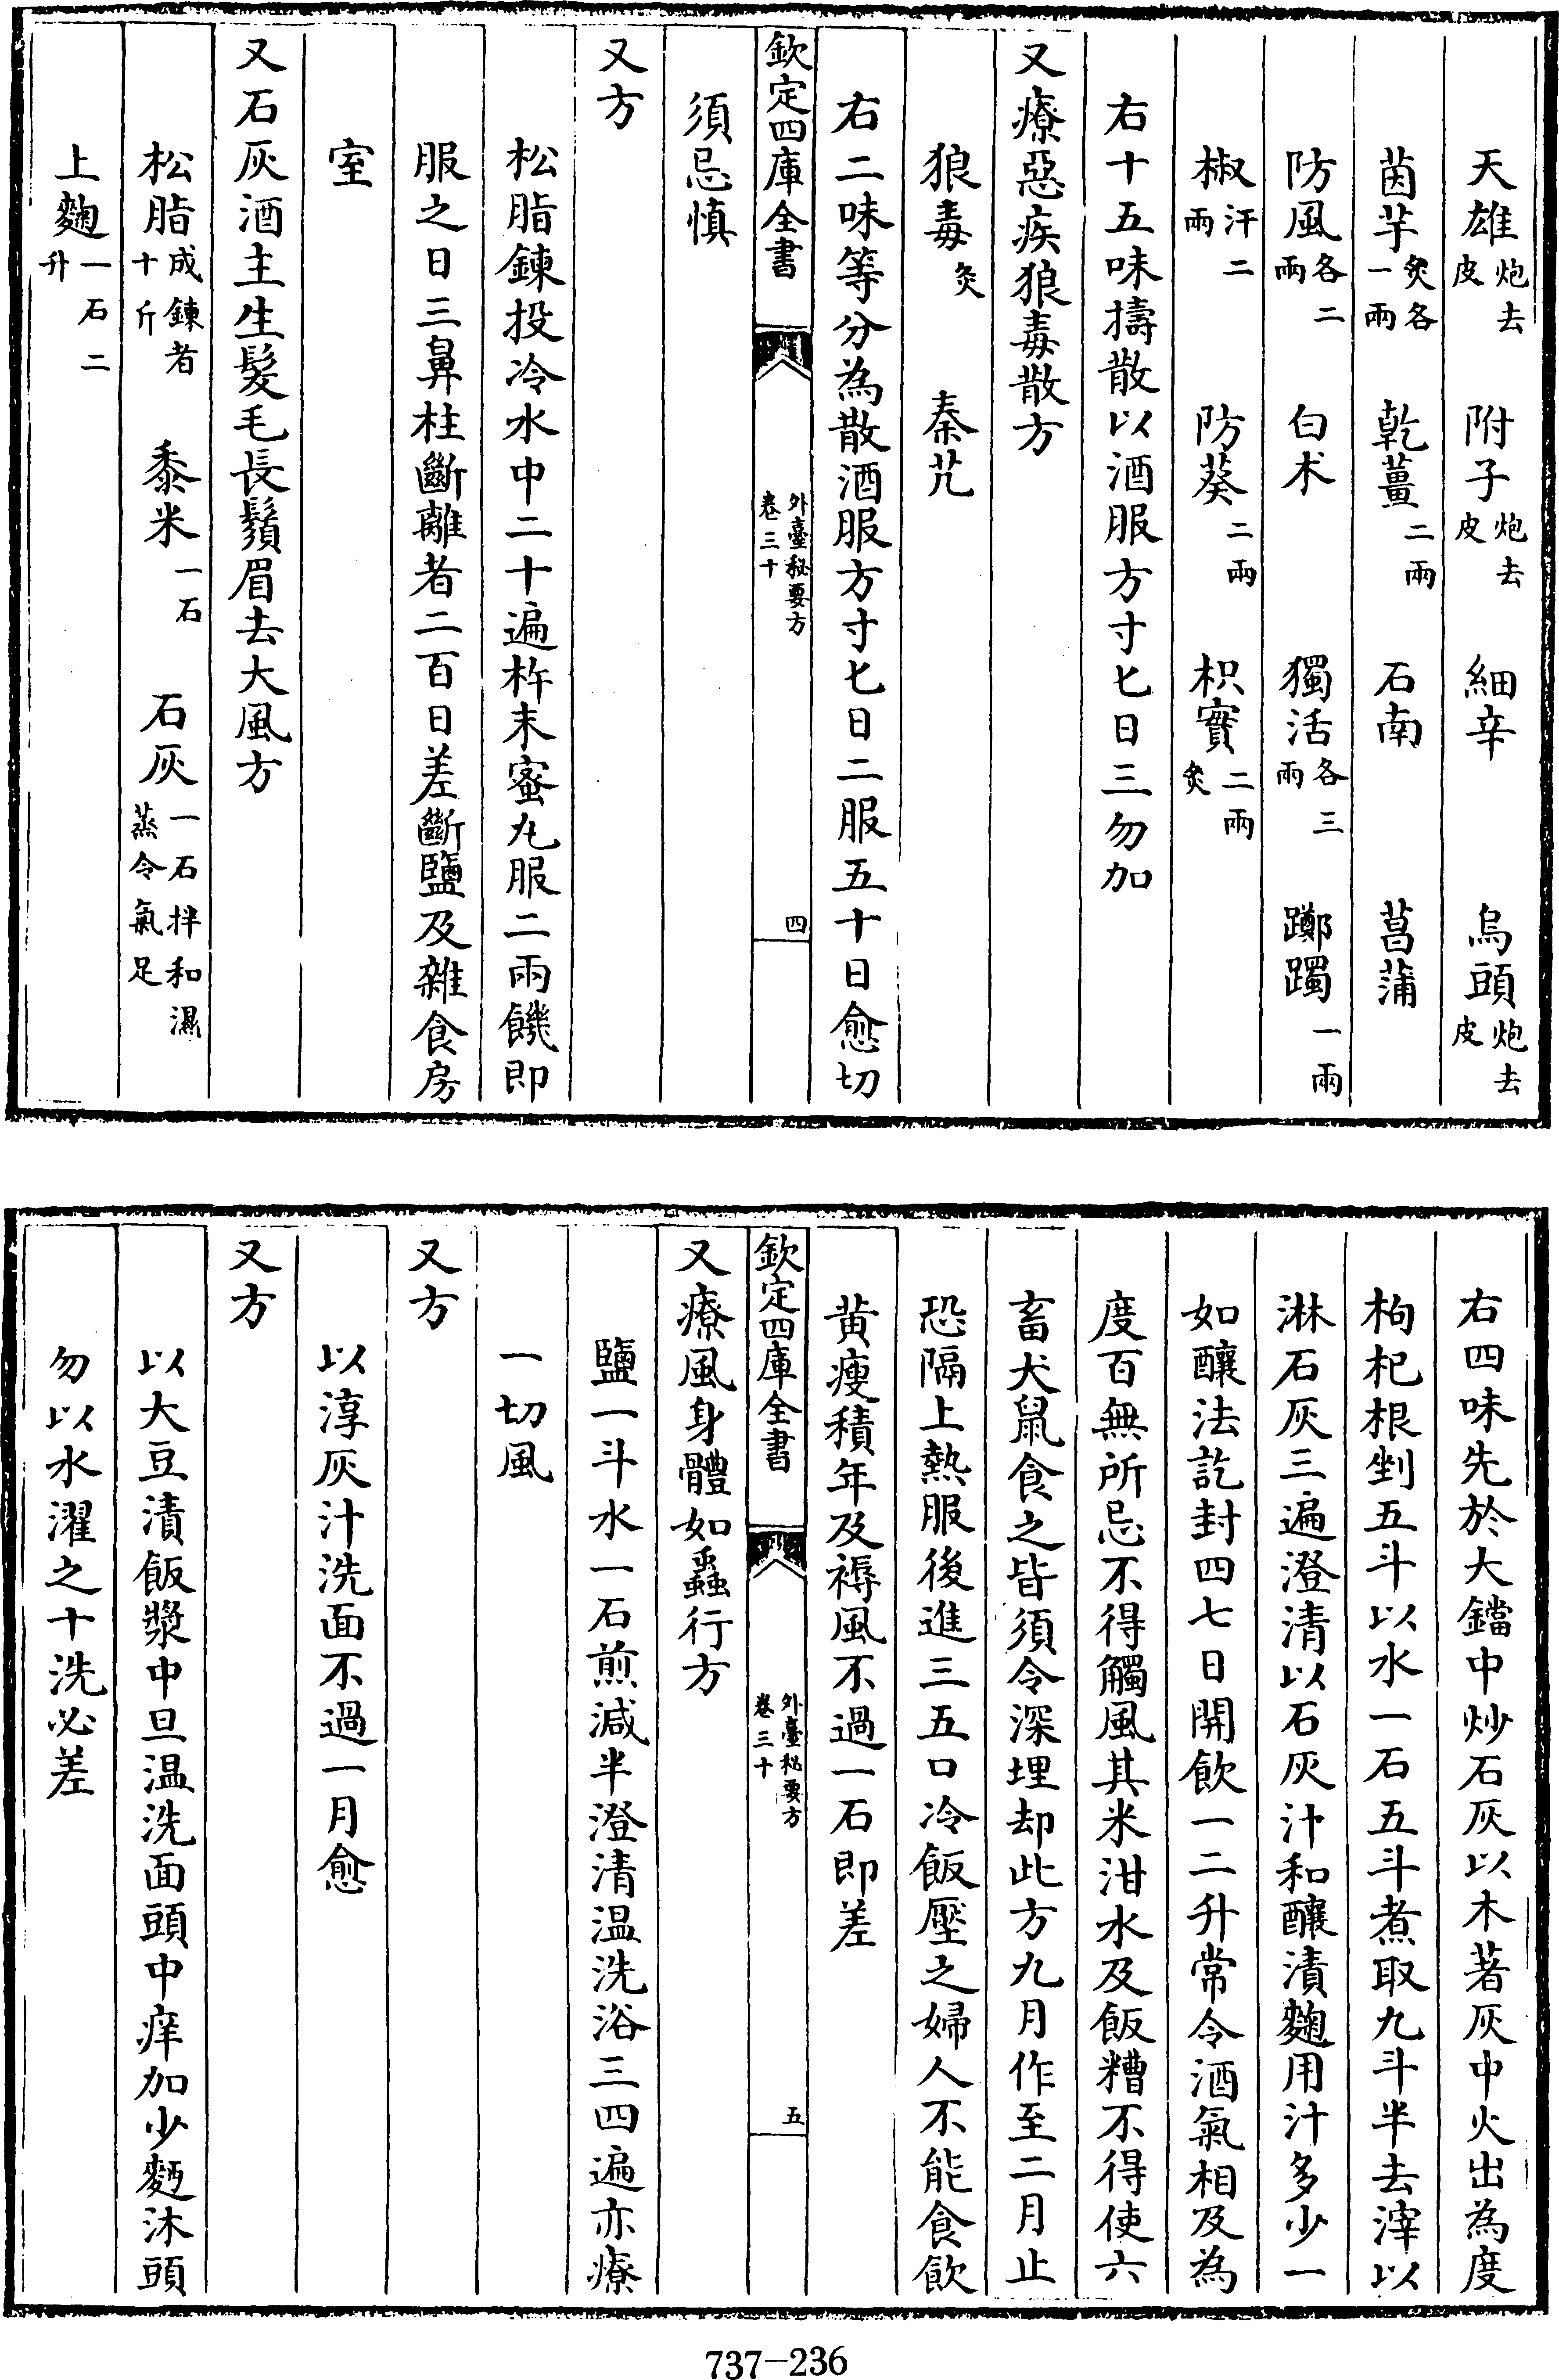 天雄炮去皮　附子炮去皮　細辛　烏頭炮去皮
茵芋炙各一兩　乾薑二兩　石南　菖蒲
防風各二兩　白术　獨活各三兩　躑躅一兩
椒汗二兩　防葵二兩　枳實二兩炙
右十五味擣散以酒服方寸匕日三勿加
又療惡疾狼毒散方
狼毒炙　秦艽
右二味等分為散酒服方寸匕日二服五十日愈切
欽定四庫全書　外臺秘要方卷三十　四
須忌慎
又方
松脂鍊投冷水中二十遍杵末蜜丸服二兩饑即
服之日三鼻柱斷離者二百日差斷鹽及雜食房
室
又石灰酒主生髮毛長鬚眉去大風方
松脂成鍊者十斤　黍米一石　石灰一石拌和濕蒸令氣足
上麴一石二升
右四味先於大鐺中炒石灰以木著灰中火出為度
枸杞根剉五斗以水一石五斗煮取九斗半去滓以
淋石灰三遍澄清以石灰汁和釀漬麴用汁多少一
如釀法訖封四七日開飲一二升常令酒氣相及為
度百無所忌不得觸風其米泔水及飯糟不得使六
畜犬鼠食之皆須令深埋却此方九月作至二月止
恐隔上熱服後進三五口冷飯壓之婦人不能食飲
黄瘦積年及褥風不過一石即差
欽定四庫全書　外臺秘要方卷三十　五
又療風身體如蟲行方
鹽一斗水一石煎減半澄清温洗浴三四遍亦療
一切風
又方
以淳灰汁洗面不過一月愈
又方
以大豆漬飯漿中旦温洗面頭中痒加少麪沐頭
勿以水濯之十洗必差
737-236